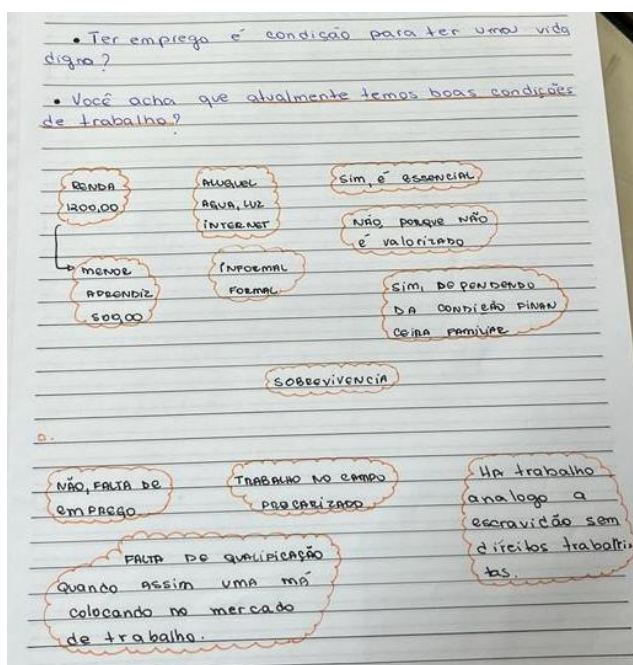 • Ter emprego é condição para ter uma vida
digna?
• Você acha que atualmente temos boas condições
de trabalho?
RENDA
1200,00
ALUGUEL
AGUA, LUZ
INTERNET
Sim, é essencial
NÃO, PORQUE NÃO
é valorizado
MENOR
APRENDIZ
500,00
INFORMAL
FORMAL
Sim, DEPENDENDO
DA CONDIÇÃO FINAN
CEIRA FAMILIAR
SOBREVIVENCIA
a.
NÃO, FALTA DE
EMPREGO
TRABALHO NO CAMPO
PRECARIZADO
HA trabalho
analogo a
escravidão sem
direitos trabalhis
tas.
FALTA DE QUALIFICAÇÃO
Quando Assim UMA MÁ
colocando no mercado
de trabalho.